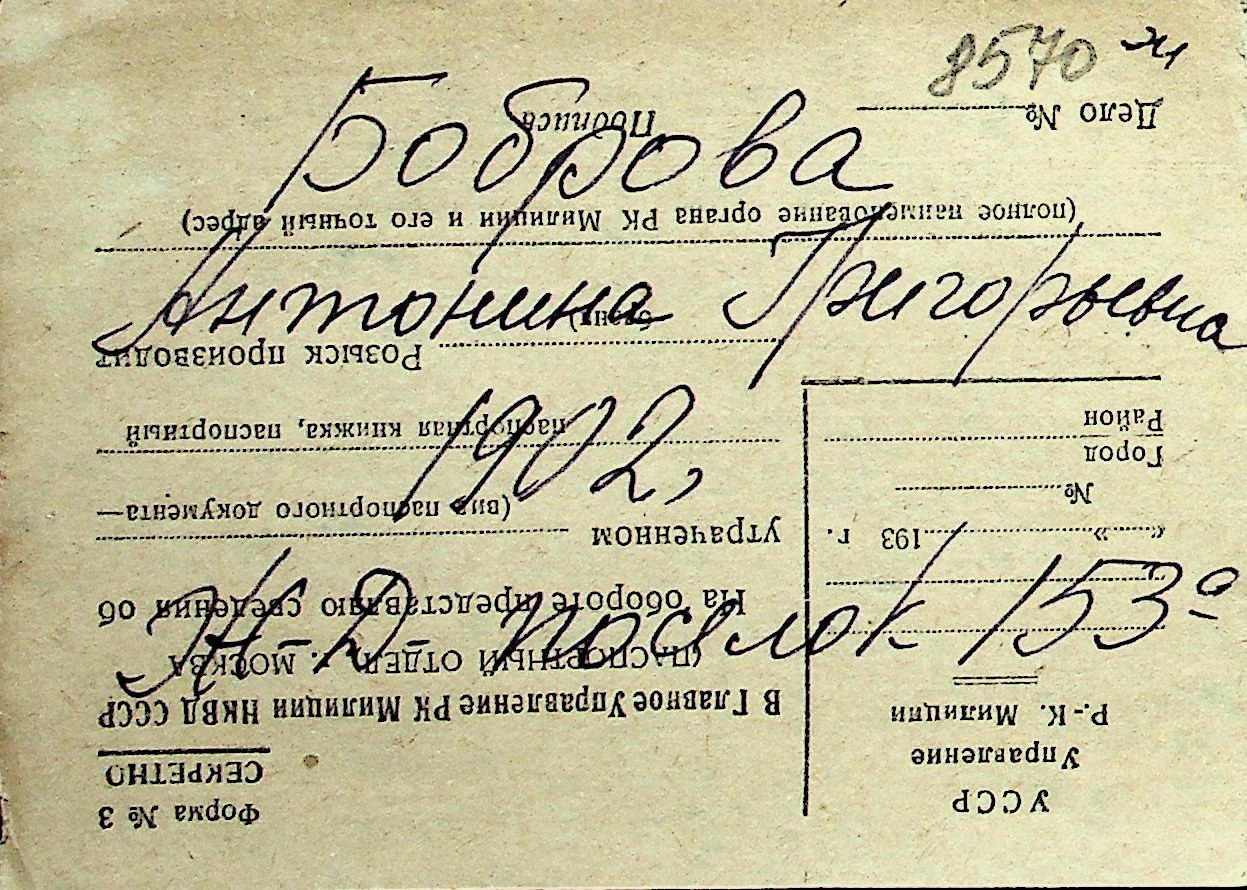 8570
Боброва
Антонина Григорьевна
1902,
Ж-Д поселок 153а
УССР
Управление
Р.-К. Милиции
„ “ 193 г.
№
Город
Район
Форма № 3
СЕКРЕТНО
В Главное Управление РК Милиции НКВД СССР
(ПАСПОРТНЫЙ ОТДЕЛ) г. МОСКВА
На обороте представляю сведения об
утраченном
(вид паспортного документа—
паспортная книжка, паспортный
бланк)
Розыск производит
(полное наименование органа РК Милиции и его точный адрес)
Подпись
Дело №